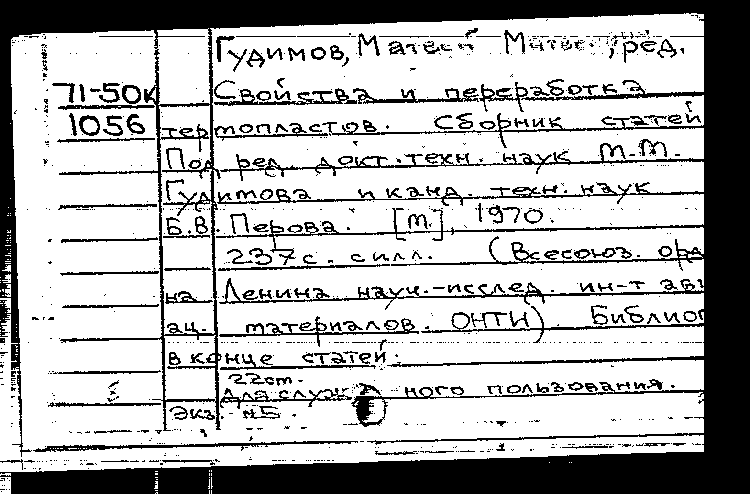 Гудимов, Матвей ред.
71-50к Свойства и переработка
1056 термопластов. Сборник статей
Под ред. докт. техн. наук М.М.
Гудимова и канд. техн. наук
Б.В. Перова. [М.], 1970.
237с. с илл. (Всесоюз. орд
на Ленина науч.-исслед. ин-т ави
ац. материалов. ОНТИ). Библиог
в конце статей.
22 ст.
Для служ ного пользования.
Экз. №5.